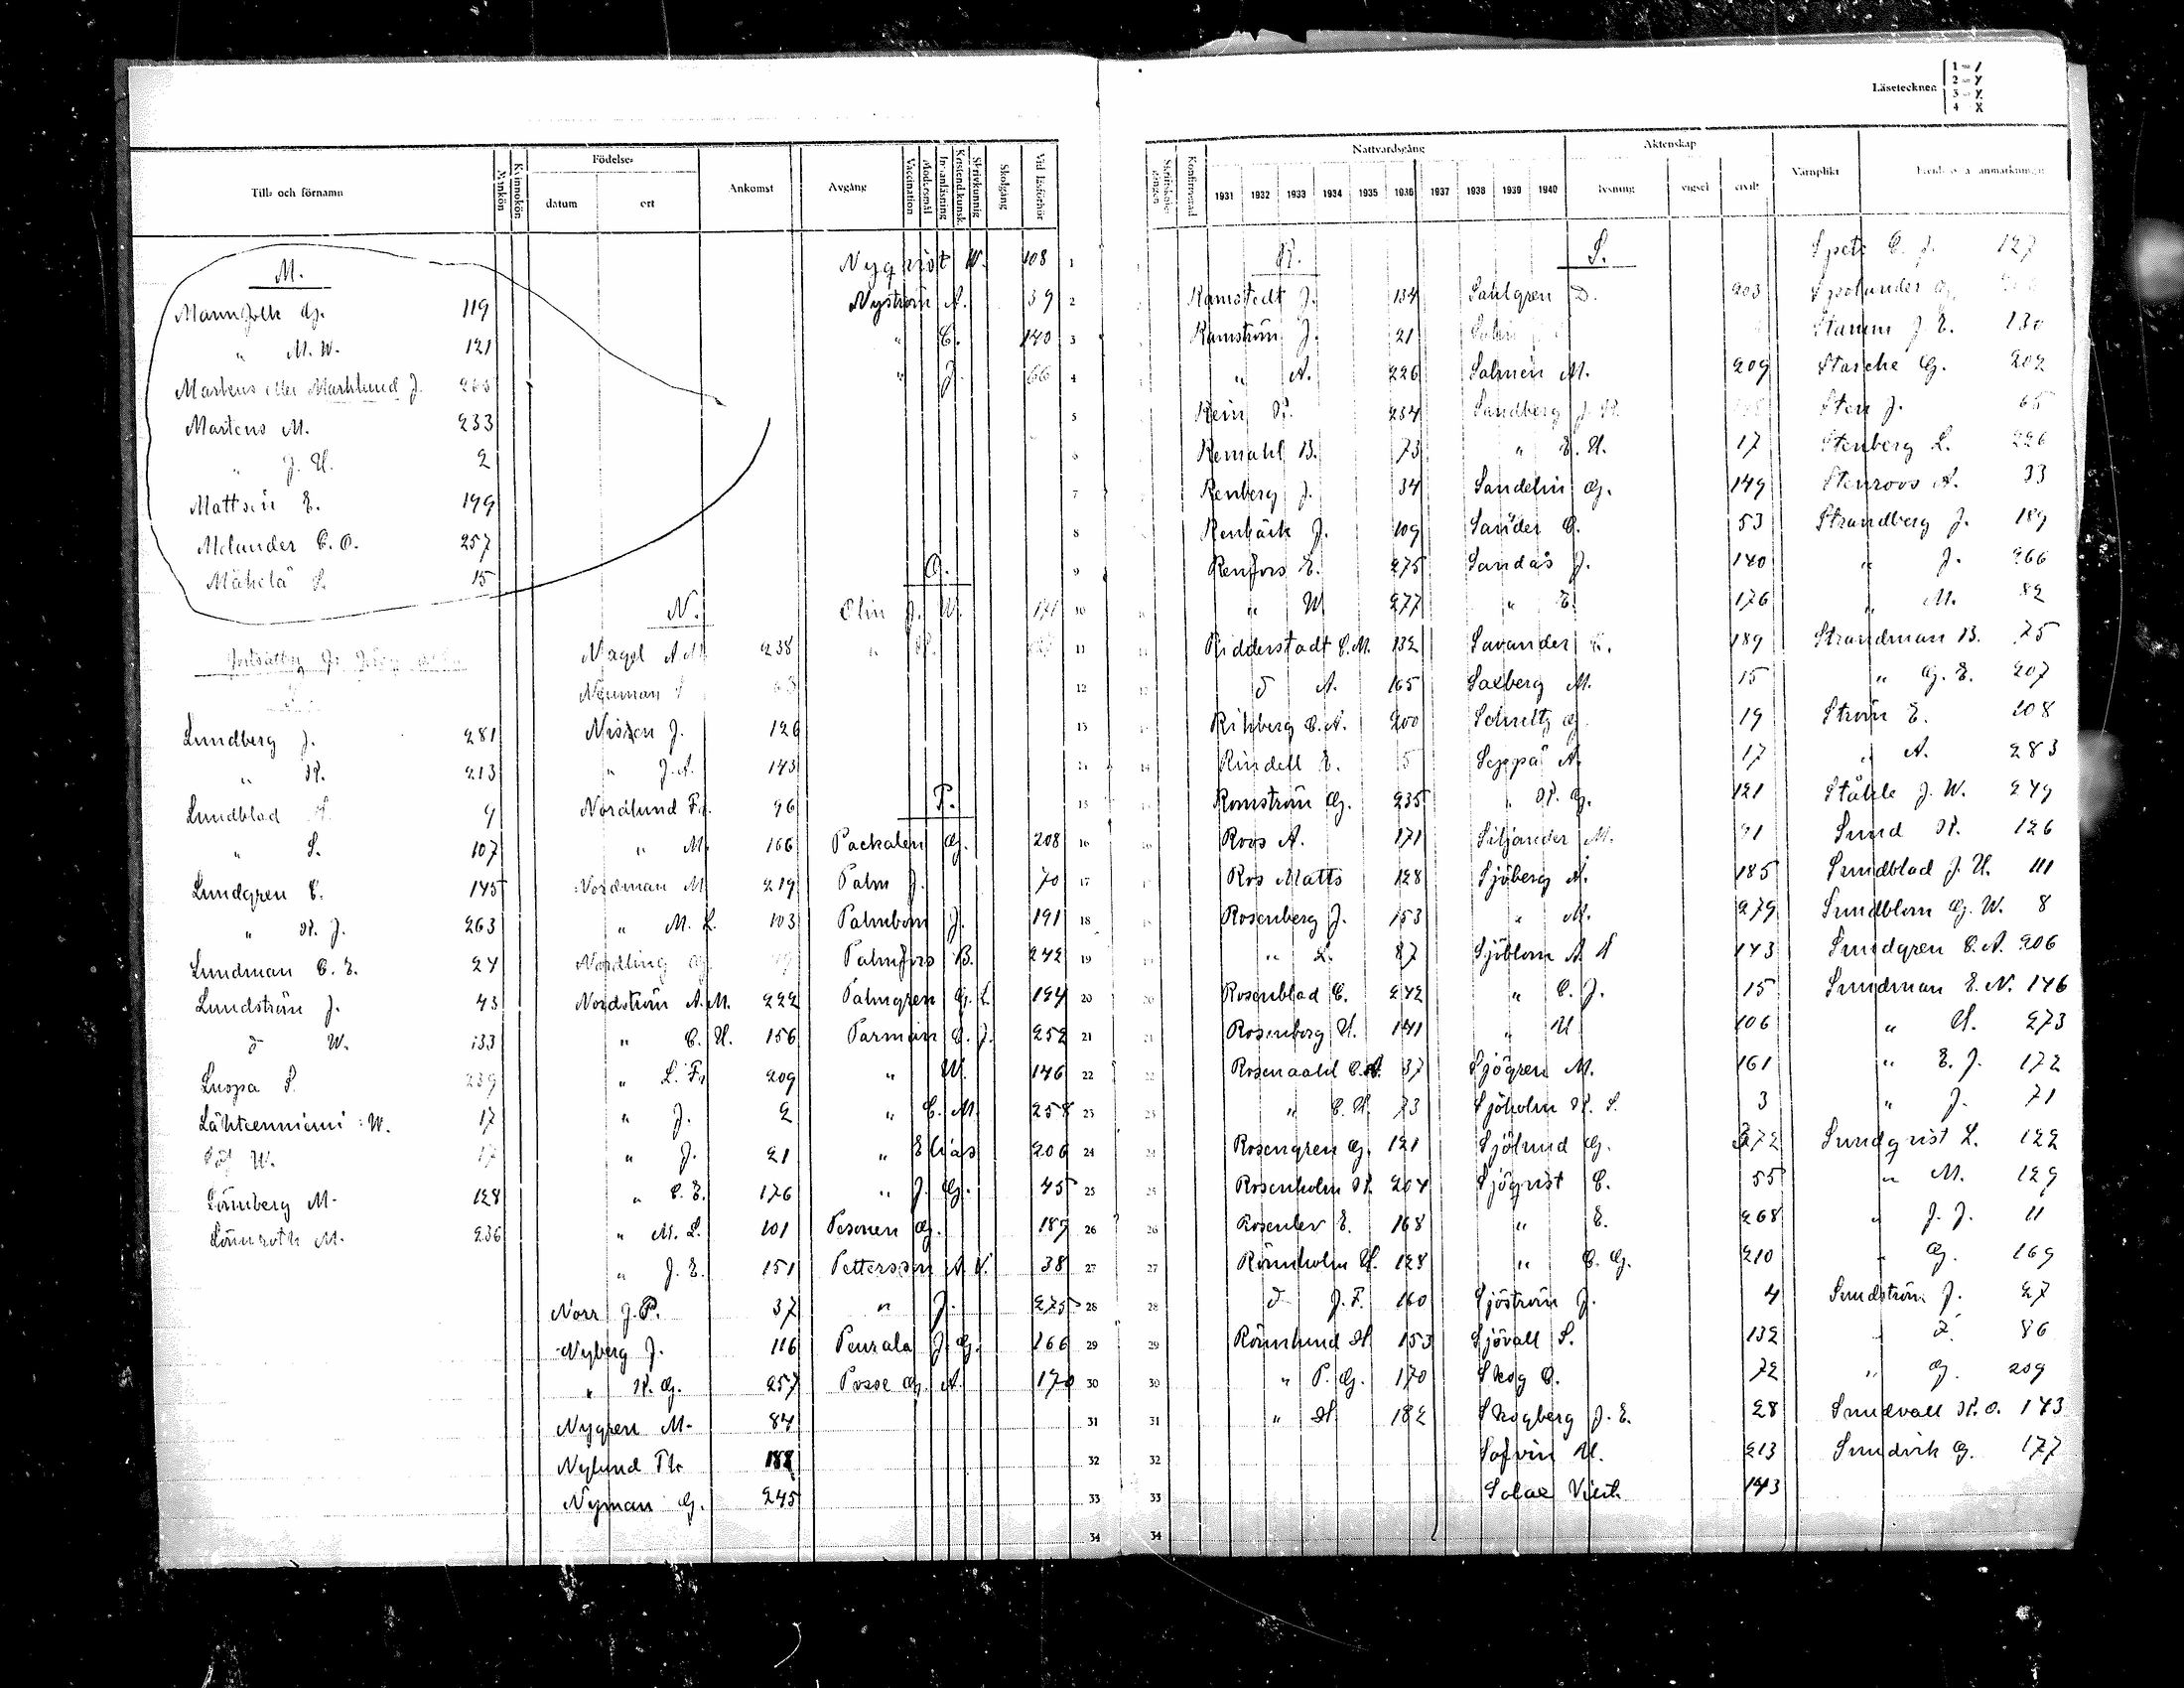 Läsetecknen
1 = /
2 = Y
3 = Y.
4 X
Till- och förnamn
Mankön
Kvinnokön
Födelse-
datum
ort
Ankomst
Avgång
Vaccination
Modersmål
Innanläsning
Kristend.kunsk.
Skrivkunnig
Skolgång
Vid läsförhör
M.
Mannfolk G. 119
" M. W. 121
Martens eller Marklund J. 265
Martens M. 233
" J. U. 2
Mattsén E. 199
Melander C. O. 257
Mäkelä S. 15
Lundberg J. 281
" H. 213
Lundblad 9
" S. 107
Lundgren C. 145
" H. J. 263
Lundman C. E. 24
Lundström J. 43
d W. 133
Luopa S. 239
Lähteenniemi W. 17
W. 17
Lönnberg M. 128
Lönnroth M. 236
N.
Nagel A. M. 238
Neuman 63
Nissen J. 126
" J. A. 143
Nordlund Fr. 96
" M. 166
Nordman M. 219
" M. L. 103
Nordling
Nordström A. M. 222
" C. U. 156
" L. Fr. 209
" J. 2
" J. 21
" C. E. 176
" M. L. 101
" J. E. 151
Norr J. P. 37
Nyberg J. 116
" H. G. 257
Nygren M. 84
Nylund Th. 188
Nyman G. 245
Nyqvist W. 108
Nyström A. 39
" C. 140
" J. 66
O.
Olin J. W. 141
" H.
P.
Packalen G. 208
Palm J. 70
Palmbom J. 191
Palmfors B. 242
Palmgren G. L. 194
Parman C. J. 252
" W. 146
" C. M. 258
" Elias 206
" J. G. 45
Pesonen G. 189
Petterson A. V. 38
" J. 275
Peurala J. G. 166
Posse G. A. 170
1
2
3
4
5
6
7
8
9
10
11
12
13
14
15
16
17
18
19
20
21
22
23
24
25
26
27
28
29
30
31
32
33
34
Skriftskolegången
Konfirmerad
Nattvardsgång
1931 1932 1933 1934 1935 1936 1937 1938 1939 1940
Äktenskap
lysning
vigsel
civilt
Värnplikt
R.
Ramstedt J. 134
Ramström J. 21
" A. 226
Rein H. 234
Remahl B. 73
Renberg J. 34
Renbäck J. 109
Renfors E. 275
" W. 277
Ridderstadt C. M. 132
d A. 165
Rihberg C. A. 200
Rindell E. 5
Romström G. 235
Roos A. 171
Ros Matts 128
Rosenberg J. 153
" L. 87
Rosenblad C. 242
Rosenberg U. 141
Rosendahl C. A. 37
" C. U. 73
Rosengren G. 121
Rosenholm H. 204
Rosenlev E. 168
Rönnholm U. 128
d J. F. 160
Rönnlund H. 153
" P. G. 170
" H. 182
S.
Sahlgren D. 203
Salmén M. 209
Sandberg J. H.
" E. U. 17
Sandelin G. 149
Sander C. 53
Sandås J. 140
" E. 176
Savander C. 189
Saxberg M. 15
Schultz G. 19
Seppä A. 17
" H. G. 121
Siljander M. 91
Sjöberg A. 185
" M. 279
Sjöblom A. 143
" C. J. 15
" U 106
Sjögren M. 161
Sjöholm H. S. 3
Sjölund G. 272
Sjöqvist C. 55
" E. 268
" C. G. 210
Sjöström J. 4
Sjövall S. 132
Skog C. 72
Skogberg J. E. 28
Sofvin U. 213
Solax Vilih. 143
Spets C. J. 127
Spolander G.
Stamm J. E. 130
Stasche G. 202
Sten J. 65
Stenberg L. 226
Stenroos A. 33
Strandberg J. 189
" J. 266
" M. 82
Strandman B. 75
" G. E. 207
Ström E. 108
" A. 283
Ståhle J. W. 249
Sund H. 126
Sundblad J. U. 111
Sundblom G. W. 8
Sundgren C. A. 206
Sundman E. N. 146
" U. 273
" E. J. 172
" J. 71
Sundqvist L. 122
" M. 129
" J. J. 11
" G. 169
Sundström J. 27
" L. 86
" G. 209
Sundvall H. O. 143
Sundvik G. 177